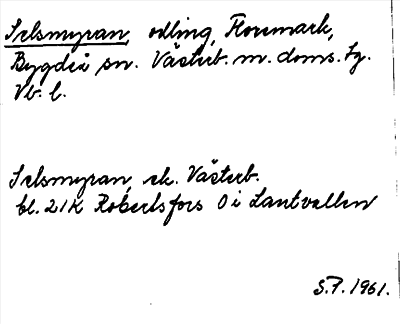 Selsmyran, odling, Flonmark,
Bygdeå sn. Västerb. m. doms. tg.
Vb. l.
Selsmyran, ek. Västerb.
bl. 21K Robertsfors O i Lantvallen
S.F. 1961.